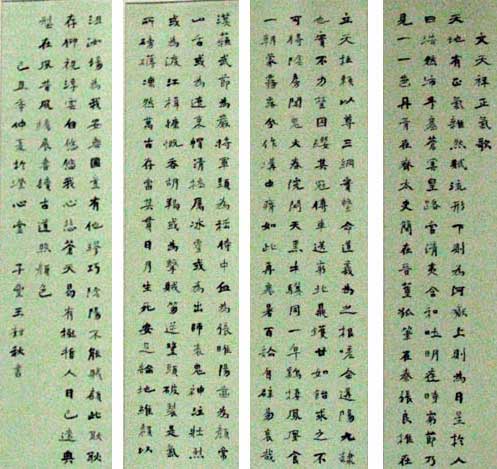 文天祥正氣歌
天地有正氣雜然賦流形下則為河嶽上則為日星於人
曰浩然沛乎塞蒼冥皇路當清夷含和吐明庭時窮節乃
見一一垂丹青在齊太史簡在晉董狐筆在秦張良椎在
立天柱賴以尊三綱實繫命道義為之根嗟余遘陽九隸
也實不力楚囚纓其冠傳車送窮北鼎鑊甘如飴求之不
可得陰房闃鬼火春院閟天黑牛驥同一皁雞棲鳳凰食
一朝蒙霧露分作溝中瘠如此再寒暑百沴自辟易哀哉
漢蘇武節為嚴將軍頭為嵇侍中血為張睢陽齒為顏常
山舌或為遼東帽清操厲冰雪或為出師表鬼神泣壯烈
或為渡江楫慷慨吞胡羯或為擊賊笏逆豎頭破裂是氣
所磅礴凜然萬古存當其貫日月生死安足論地維賴以
沮洳場為我安樂國豈有他繆巧陰陽不能賊顧此耿耿
存仰視浮雲白悠悠我心悲蒼天曷有極哲人日已遠典
型在夙昔風簷展書讀古道照顏色
己丑年仲夏於澄心堂 子 王 秋書